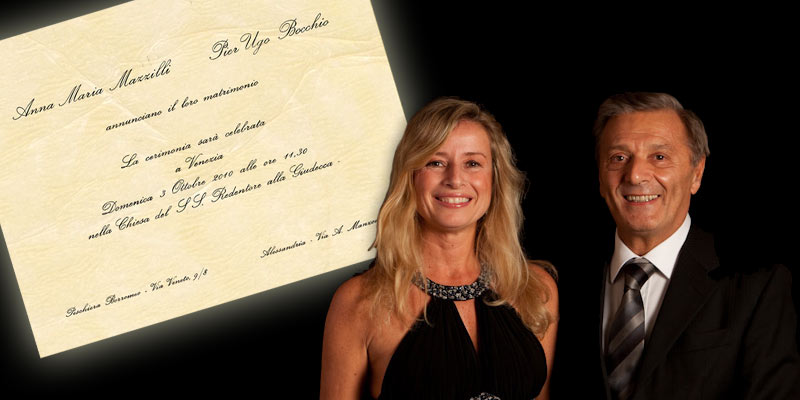 Anna Maria Mazzilli Pier Ugo Bocchio
annunciano il loro matrimonio
La cerimonia sarà celebrata
a Venezia
Domenica 3 Ottobre 2010 alle ore 11,30
nella Chiesa del S.S. Redentore alla Giudecca.
Peschiera Borromeo - Via Veneto, 9/8
Alessandria - Via A.